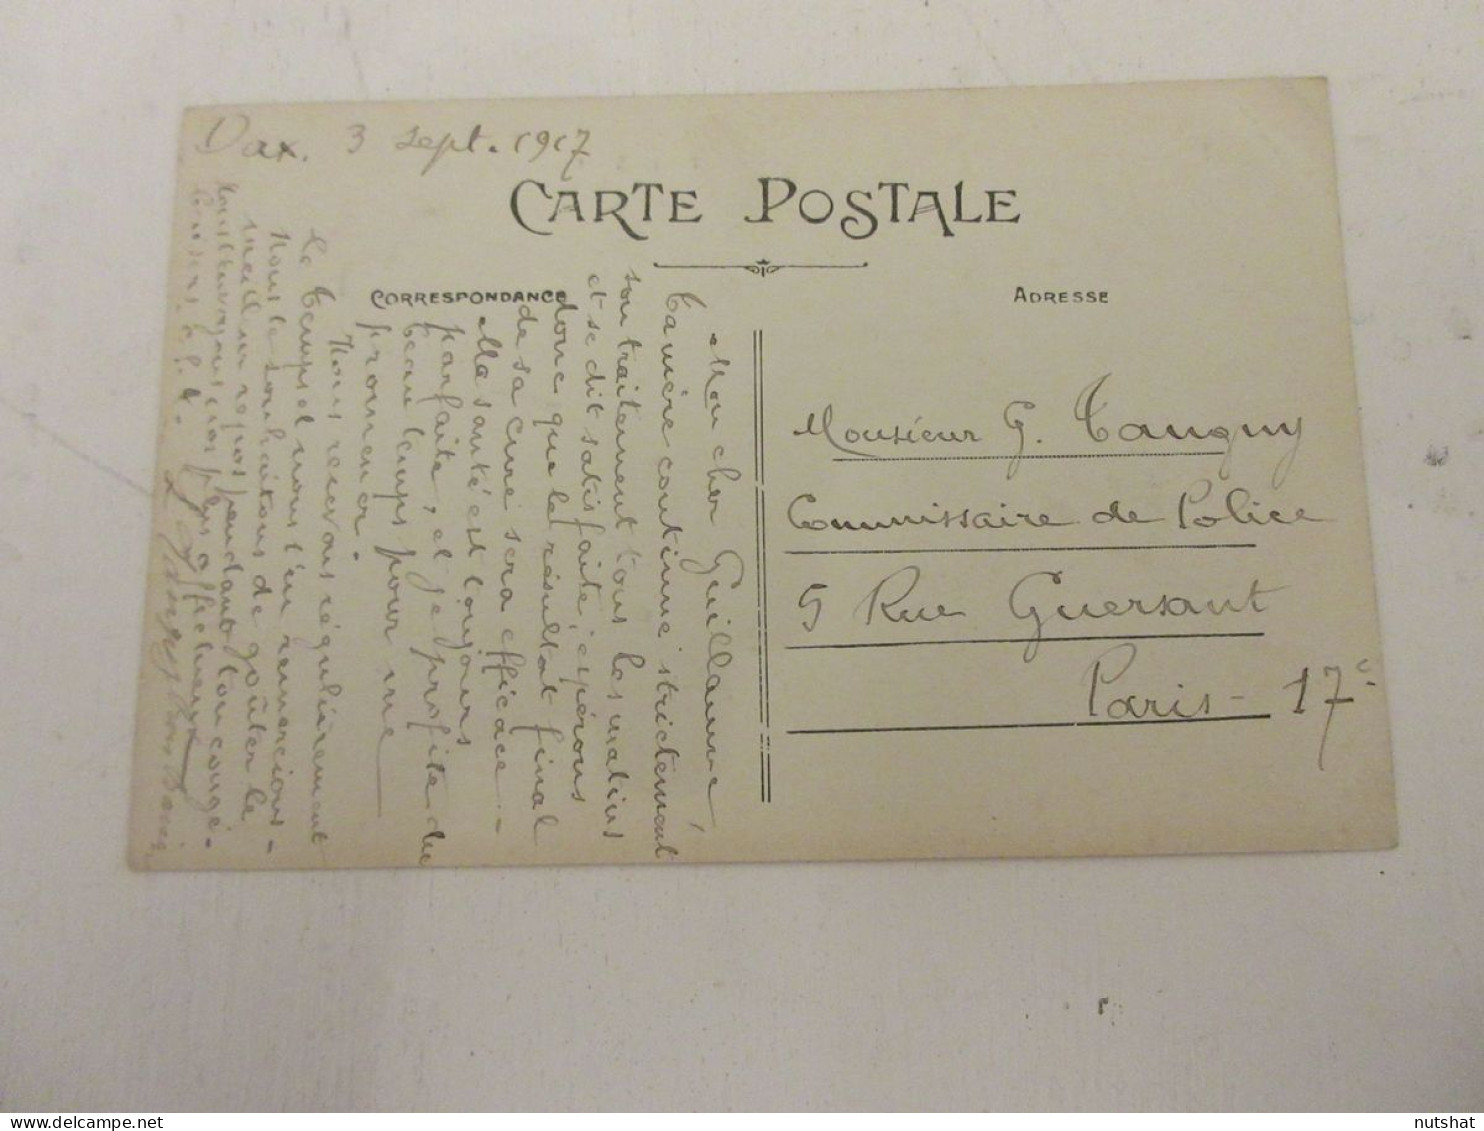 Dax. 3 sept. 1917
CARTE POSTALE
CORRESPONDANCE
ADRESSE
Mon cher Guillaume,
continue strictement
son traitement tous les matins
et se dit satisfaite, espérons
donc que le résultat final
de sa cure sera efficace. -
Ma santé est toujours
parfaite, et je profite du
beau temps pour me
promener.
Nous recevons régulièrement
Le Temps et nous t'en remercions -
Nous te souhaitons de goûter le
meilleur repos pendant ton congé.
plus affectueux
Monsieur G. Tanguy
Commissaire de Police
5 Rue Guersant
Paris - 17e
nutshat
delcampe.net